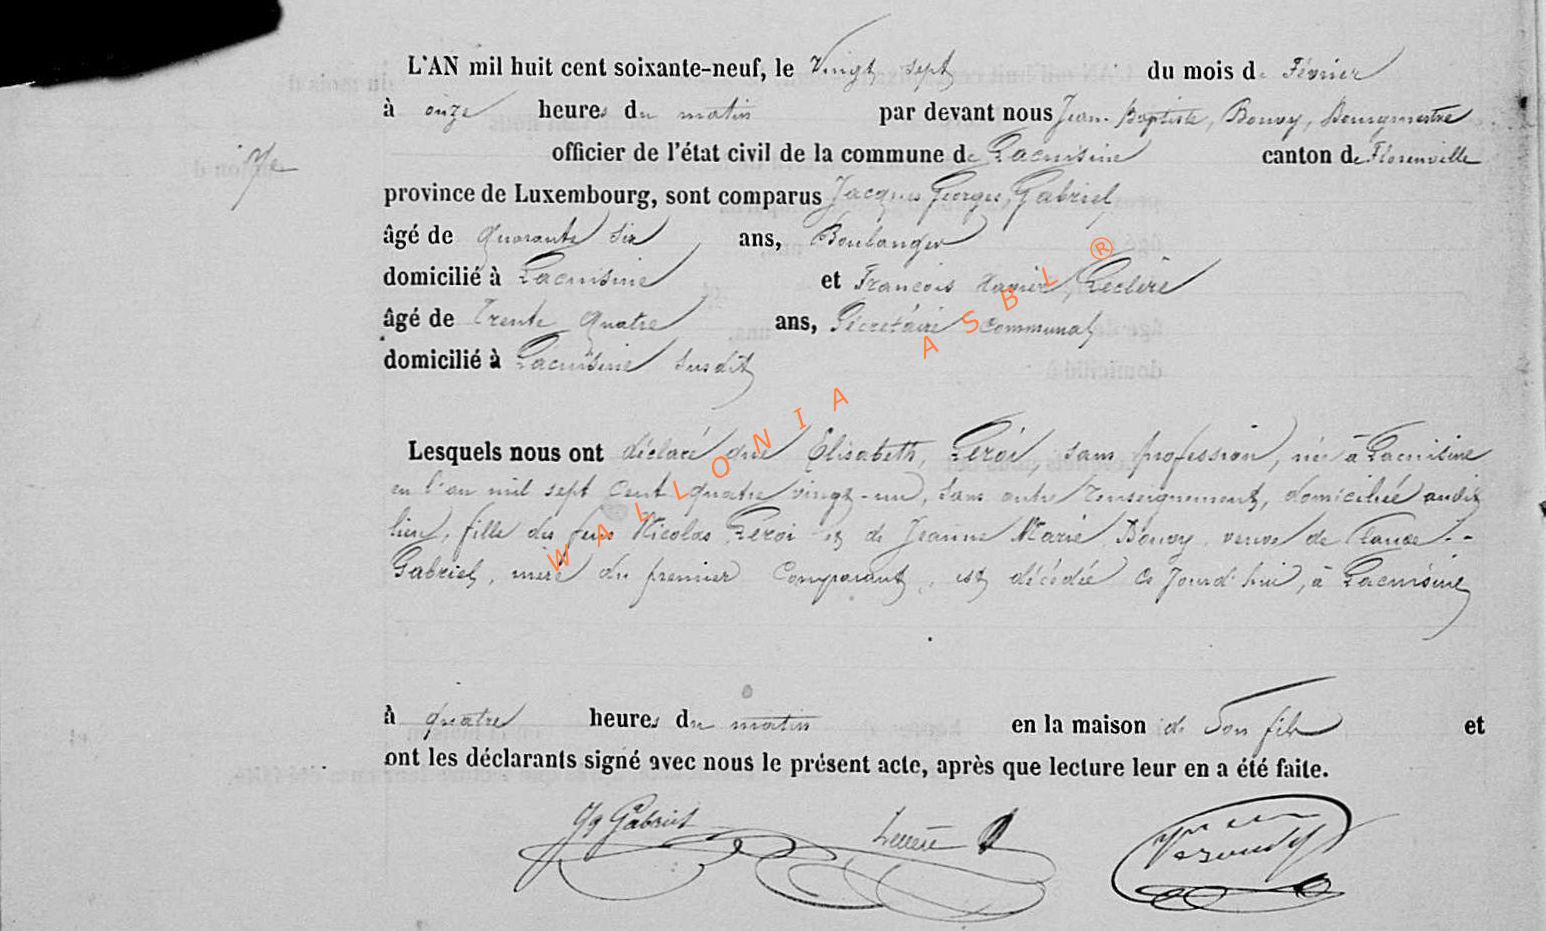 L'AN mil huit cent soixante-neuf, le Vingt sept du mois de Février
à onze heures du matin par devant nous Jean-Baptiste, Bouvy, Bourgmestre
7e officier de l'état civil de la commune de Lacuisine canton de Florenville
province de Luxembourg, sont comparus Jacques Georges, Gabriel,
âgé de Quarante Six ans, Boulanger
domicilié à Lacuisine et François Xavier, Leclère
âgé de Trente Quatre ans, Sécretaire Communal
domicilié à Lacuisine susdit
Lesquels nous ont déclaré que Elisabeth, Leroi, sans profession, née à Lacuisine
en l'an mil sept cent quatre vingt-un, sans autre renseignement, domiciliée audit
lieu, fille des feus Nicolas Leroi et de Jeanne Marie Bouvy veuve de Claude
Gabriel, mère du premier Comparant, est décédée ce jourd'hui, à Lacuisine
à quatre heures du matin en la maison de Son fils et
ont les déclarants signé avec nous le présent acte, après que lecture leur en a été faite.
Jg Gabriel Leclère
WALLONIA ASBL ®